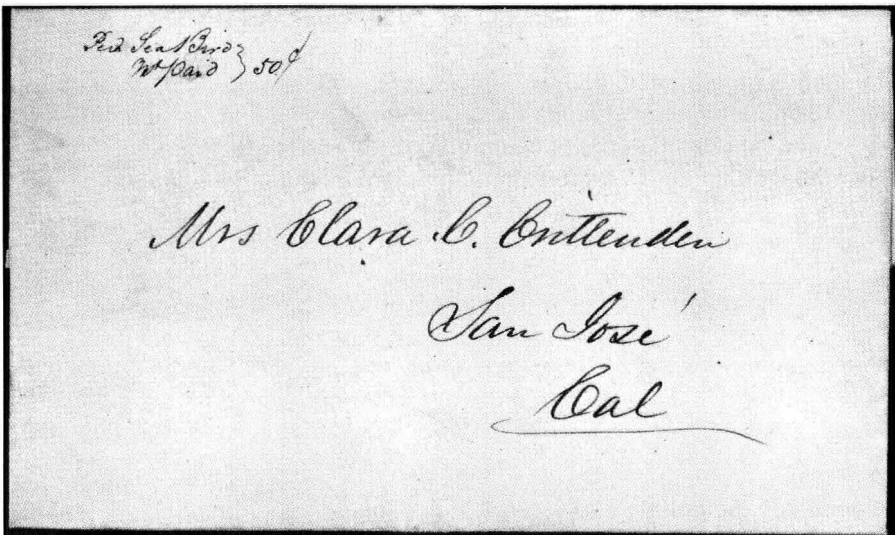 Per Sea Bird } 50¢
Wt Paid
Mrs Clara C. Crittenden
San José
Cal